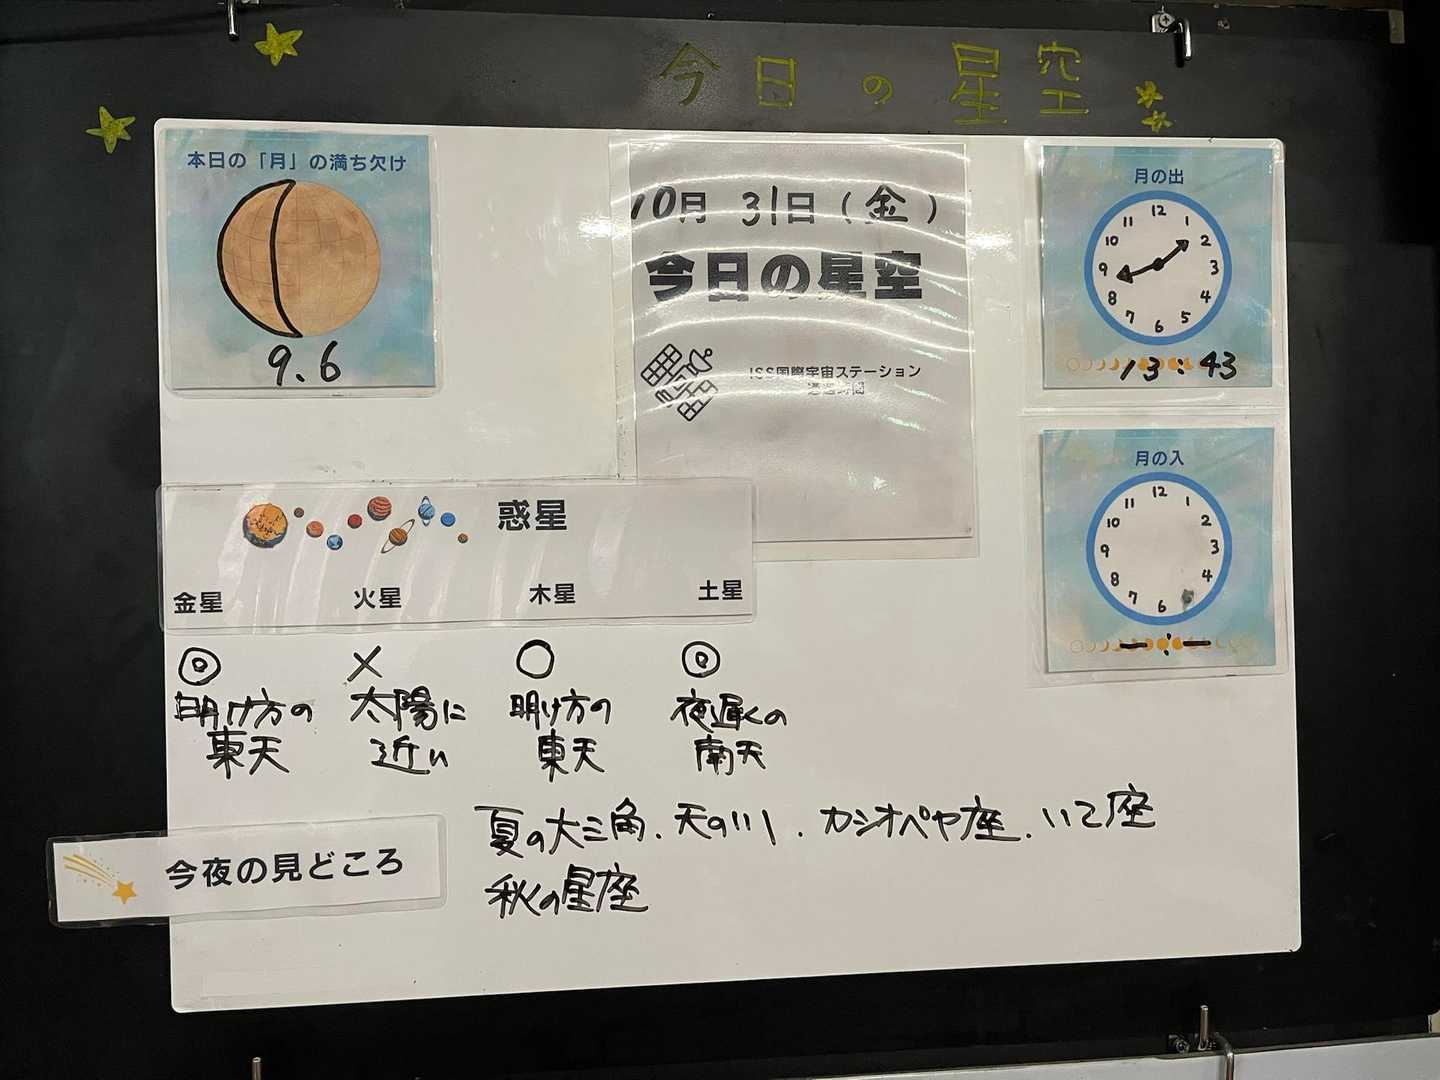 今日の星空
本日の「月」の満ち欠け
9.6
10月 31日（金）
今日の星空
ISS国際宇宙ステーション
通過時間
月の出
12
11 1
10 2
9 3
8 4
7 5
6
13:43
月の入
12
11 1
10 2
9 3
8 4
7
6
-:-
惑星
金星 火星 木星 土星
◎ × ○ ◎
明け方の 太陽に 明け方の 夜遅くの
東天 近い 東天 南天
今夜の見どころ
夏の大三角、天の川、カシオペヤ座、いて座
秋の星座